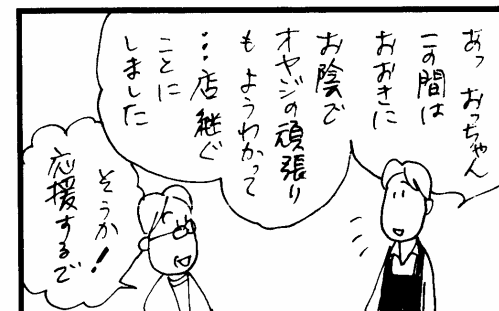 あっ おっちゃん
この間は
おおきに
お陰で
オヤジの頑張り
も ようわかって
…店継ぐ
ことに
しました
そうか!
応援するで